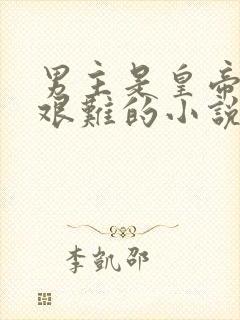 男主是皇帝
艰難的小說
李凱邵